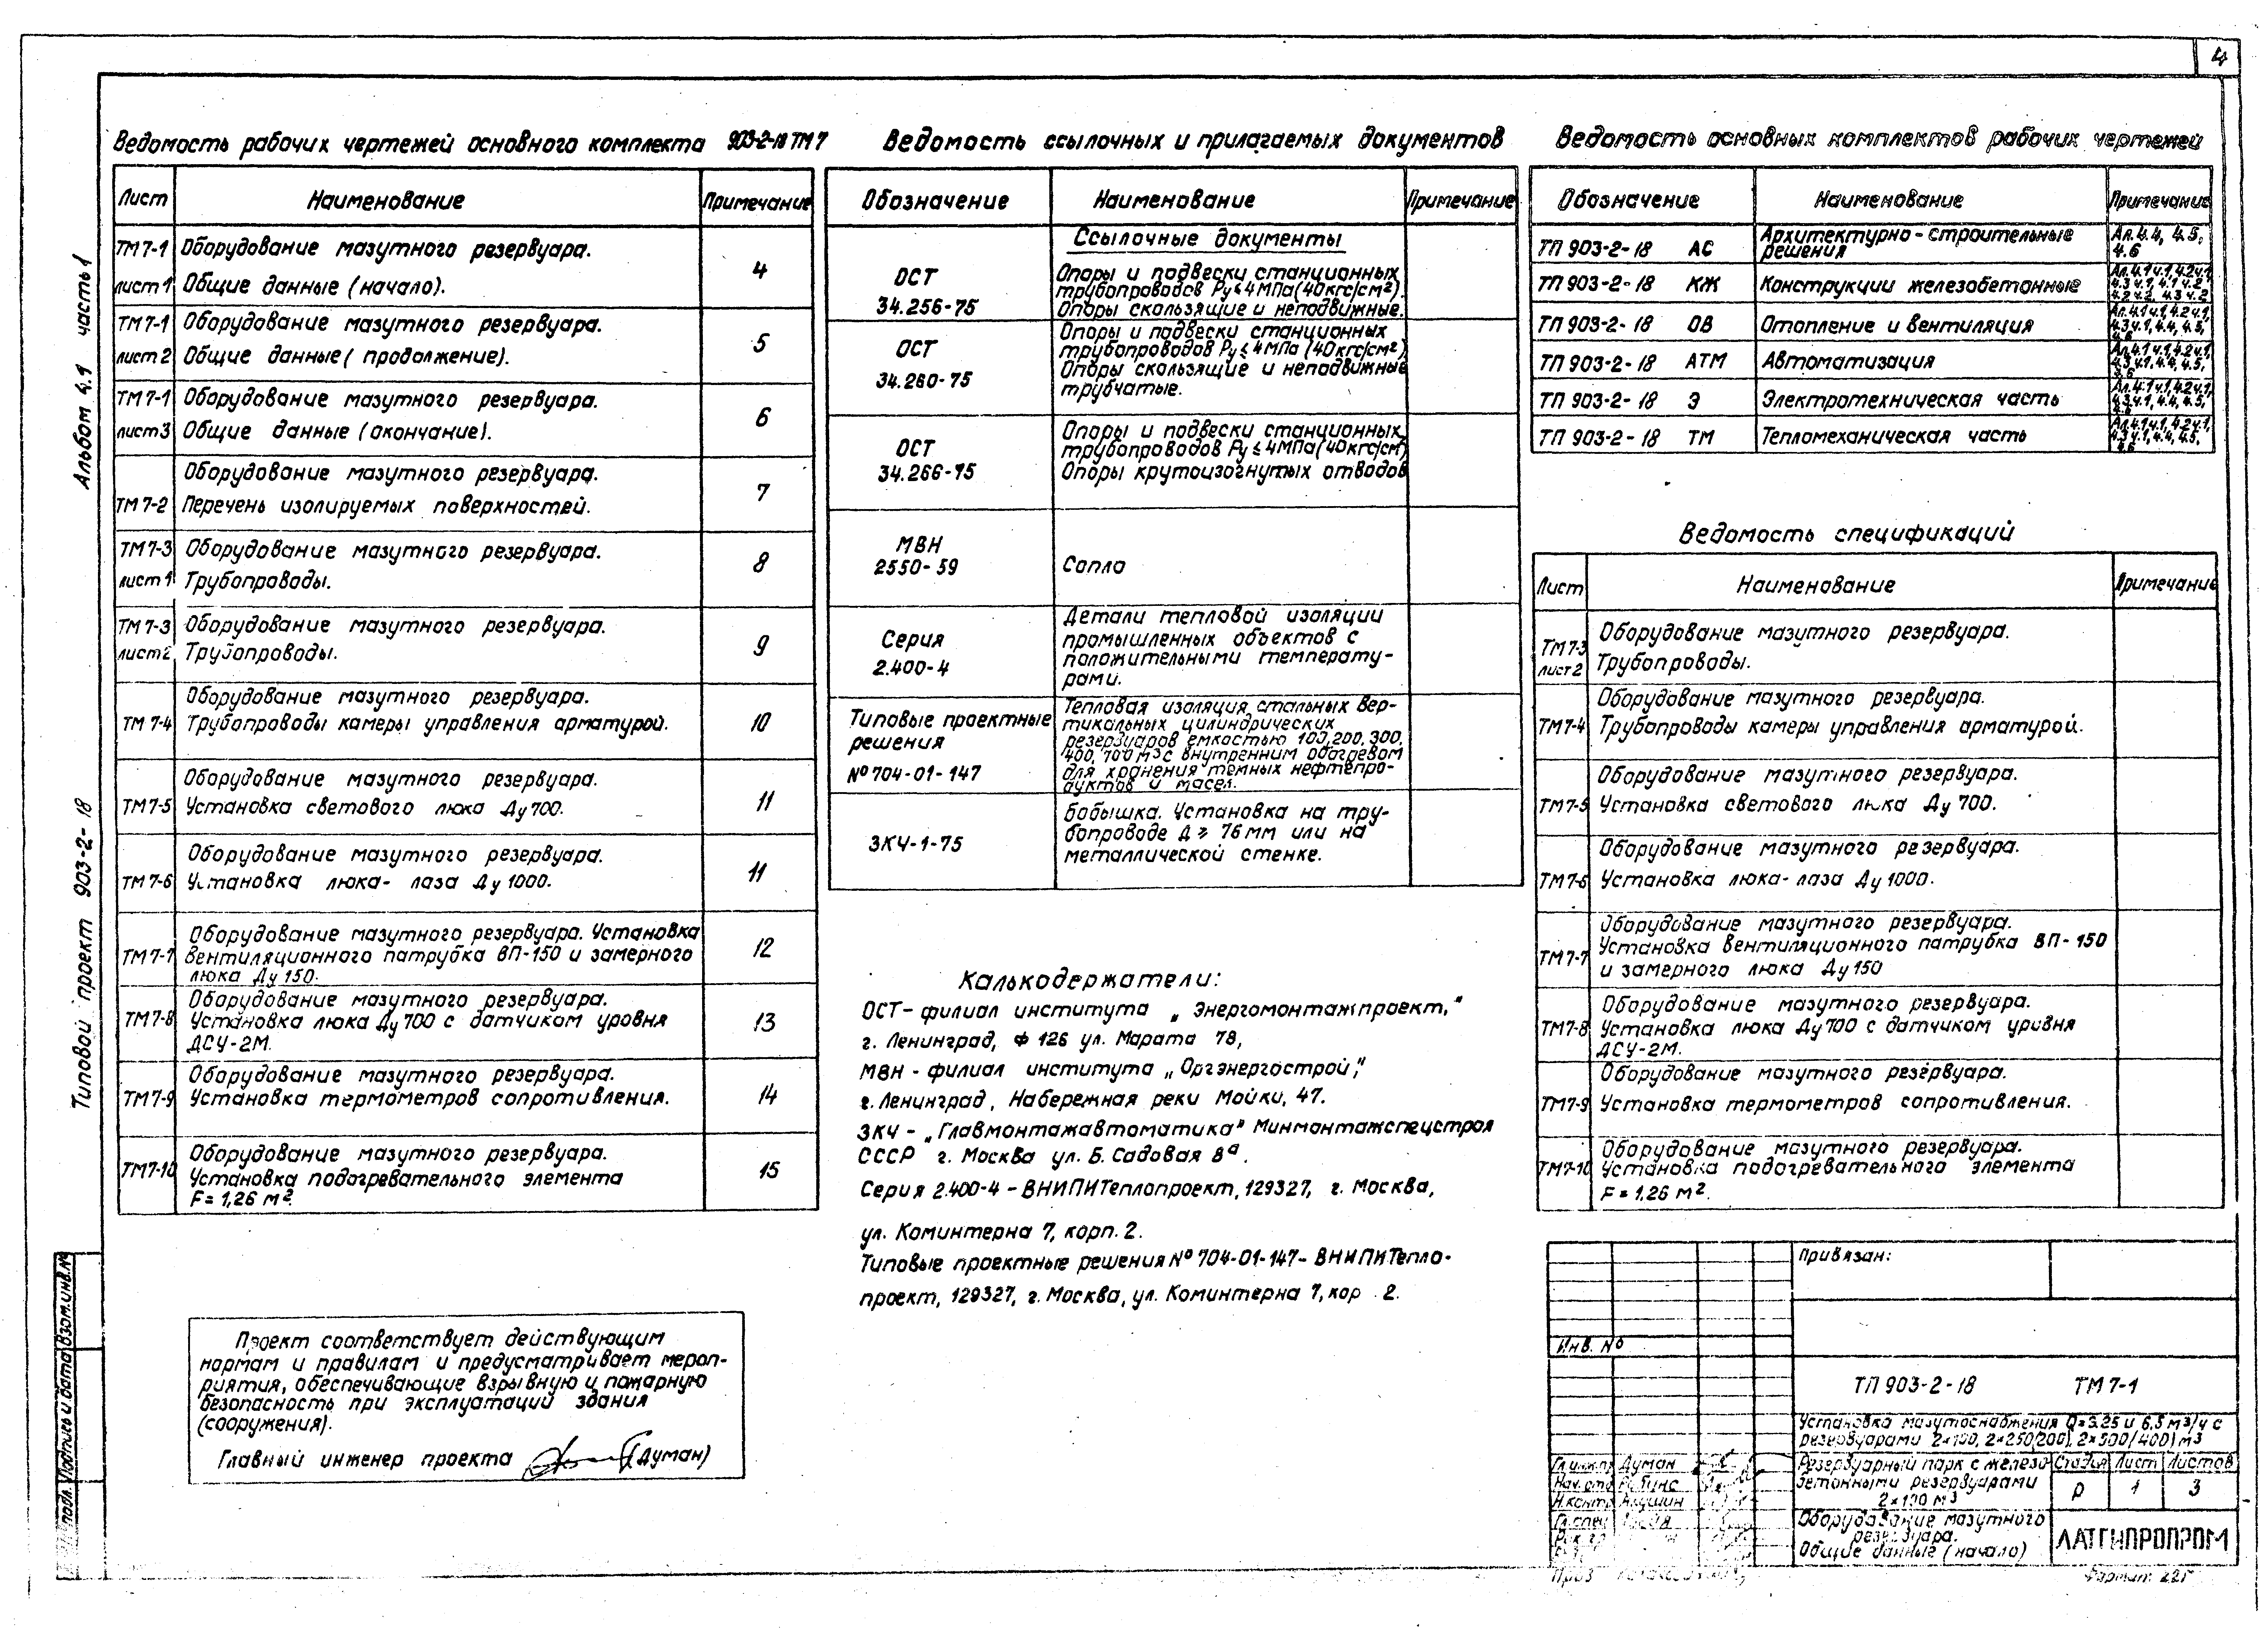 4
Альбом 4.1 часть 1
Типовой проект 903-2-18
Взам.инв.№
Подпись и дата
подл.
Ведомость рабочих чертежей основного комплекта 903-2-18 ТМ7
Лист Наименование Примечание
ТМ7-1 Оборудование мазутного резервуара.
лист 1 Общие данные (начало). 4
ТМ7-1 Оборудование мазутного резервуара.
лист 2 Общие данные (продолжение). 5
ТМ7-1 Оборудование мазутного резервуара.
лист 3 Общие данные (окончание). 6
Оборудование мазутного резервуара.
ТМ7-2 Перечень изолируемых поверхностей. 7
ТМ7-3 Оборудование мазутного резервуара.
лист 1 Трубопроводы. 8
ТМ7-3 Оборудование мазутного резервуара.
лист 2 Трубопроводы. 9
Оборудование мазутного резервуара.
ТМ7-4 Трубопроводы камеры управления арматурой. 10
Оборудование мазутного резервуара.
ТМ7-5 Установка светового люка Ду 700. 11
Оборудование мазутного резервуара.
ТМ7-6 Установка люка-лаза Ду 1000. 11
Оборудование мазутного резервуара. Установка
ТМ7-7 вентиляционного патрубка ВП-150 и замерного 12
люка Ду 150.
Оборудование мазутного резервуара.
ТМ7-8 Установка люка Ду 700 с датчиком уровня 13
ДСУ-2М.
Оборудование мазутного резервуара.
ТМ7-9 Установка термометров сопротивления. 14
Оборудование мазутного резервуара.
ТМ7-10 Установка подогревательного элемента 15
F=1,26 м².
Проект соответствует действующим
нормам и правилам и предусматривает мероп-
риятия, обеспечивающие взрывную и пожарную
безопасность при эксплуатации здания
(сооружения).
Главный инженер проекта (Думан)
Ведомость ссылочных и прилагаемых документов
Обозначение Наименование Примечание
Ссылочные документы
ОСТ
34.256-75
Опоры и подвески станционных
трубопроводов Ру≤4МПа(40кгс/см²).
Опоры скользящие и неподвижные.
ОСТ
34.260-75
Опоры и подвески станционных
трубопроводов Ру≤4МПа (40кгс/см²)
Опоры скользящие и неподвижные
трубчатые.
ОСТ
34.266-75
Опоры и подвески станционных
трубопроводов Ру≤4МПа(40кгс/см²)
Опоры крутоизогнутых отводов
МВН
2550-59
Сопло
Серия
2.400-4
Детали тепловой изоляции
промышленных объектов с
положительными температу-
рами.
Типовые проектные
решения
№704-01-147
Тепловая изоляция стальных вер-
тикальных цилиндрических
резервуаров емкостью 100,200,300,
400,700 м3 с внутренним обогревом
для хранения темных нефтепро-
дуктов и масел.
ЗКЧ-1-75
бобышка. Установка на тру-
бопроводе Д ≥ 76мм или на
металлической стенке.
Калькодержатели:
ОСТ- филиал института „Энергомонтажпроект,"
г. Ленинград, Ф 126 ул. Марата 78,
МВН - филиал института „Оргэнергострой,"
г. Ленинград, Набережная реки Мойки, 47.
ЗКЧ - „Главмонтажавтоматика" Минмонтажспецстроя
СССР г. Москва ул. Б. Садовая 8а.
Серия 2.400-4 - ВНИПИТеплопроект, 129327, г. Москва,
ул. Коминтерна 7, корп. 2.
Типовые проектные решения №704-01-147- ВНИПИТепло-
проект, 129327, г. Москва, ул. Коминтерна 7, кор . 2.
Ведомость основных комплектов рабочих чертежей
Обозначение Наименование Примечание
ТП 903-2-18 АС Архитектурно-строительные решения Ал. 4.4, 4.5, 4.6
ТП 903-2-18 КЖ Конструкции железобетонные Ал.4.1ч.1, 4.2ч.1, 4.3ч.1, 4.1ч.2 4.2ч.2, 4.3ч.2
ТП 903-2-18 ОВ Отопление и вентиляция Ал.4.1ч.1, 4.2ч.1, 4.3ч.1, 4.4, 4.5, 4.6
ТП 903-2-18 АТМ Автоматизация Ал.4.1ч.1, 4.2ч.1, 4.3ч.1, 4.4, 4.5, 4.6
ТП 903-2-18 Э Электротехническая часть Ал.4.1ч.1, 4.2ч.1, 4.3ч.1, 4.4, 4.5, 4.6
ТП 903-2-18 ТМ Тепломеханическая часть Ал.4.1ч.1, 4.2ч.1, 4.3ч.1, 4.4, 4.5, 4.6
Ведомость спецификаций
Лист Наименование Примечание
ТМ7-3 Оборудование мазутного резервуара.
лист 2 Трубопроводы.
Оборудование мазутного резервуара.
ТМ7-4 Трубопроводы камеры управления арматурой.
Оборудование мазутного резервуара.
ТМ7-5 Установка светового люка Ду 700.
Оборудование мазутного резервуара.
ТМ7-6 Установка люка-лаза Ду 1000.
Оборудование мазутного резервуара.
ТМ7-7 Установка вентиляционного патрубка ВП-150
и замерного люка Ду 150
Оборудование мазутного резервуара.
ТМ7-8 Установка люка Ду 700 с датчиком уровня
ДСУ-2М.
Оборудование мазутного резервуара.
ТМ7-9 Установка термометров сопротивления.
Оборудование мазутного резервуара.
ТМ7-10 Установка подогревательного элемента
F=1,26 м².
Привязан:
Инв. №
ТП 903-2-18 ТМ7-1
Установка мазутоснабжения Q=3.25 и 6,5 м³/ч с
резервуарами 2×100, 2×250(200), 2×500(400) м3
Гл.инж.пр Думан
Нач.отд
Н.контр
Гл.спец
Резервуарный парк с железо-
бетонными резервуарами
2×100 м3
Стадия Лист Листов
Р 1 3
Оборудование мазутного
резервуара.
Общие данные (начало)
ЛАТГИПРОПРОМ
Формат 22Г